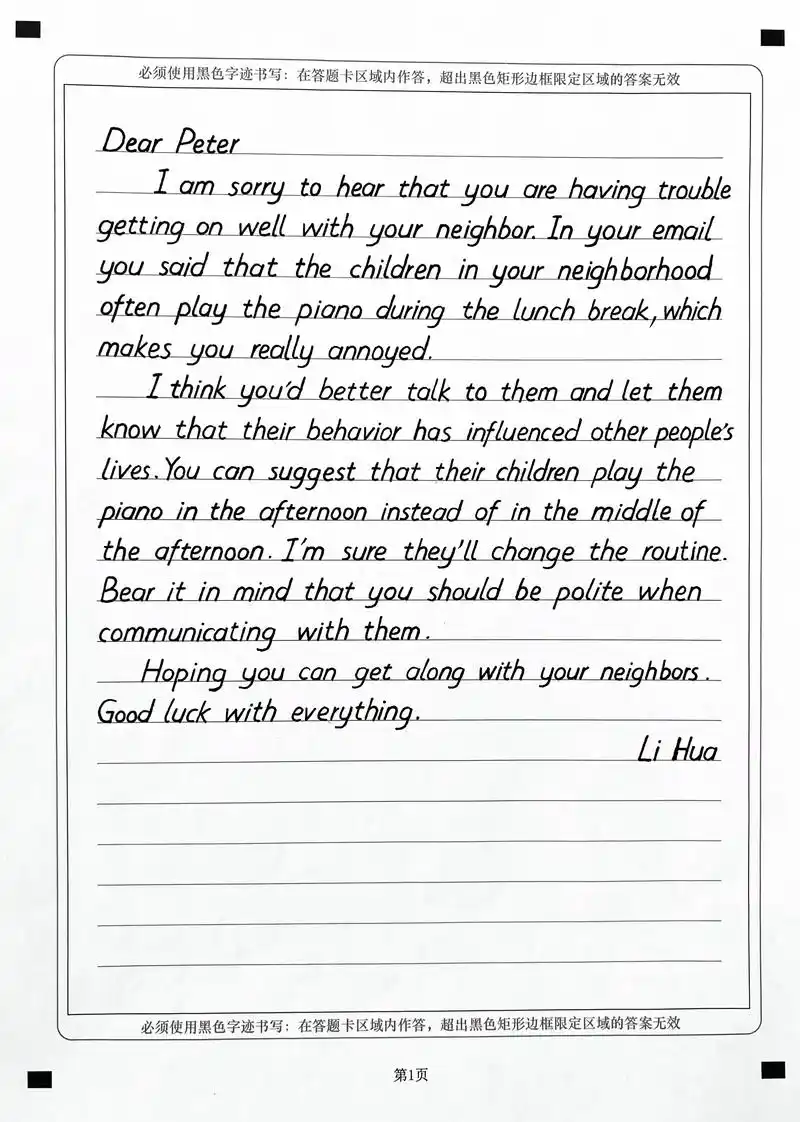 必须使用黑色字迹书写：在答题卡区域内作答，超出黑色矩形边框限定区域的答案无效
Dear Peter
I am sorry to hear that you are having trouble
getting on well with your neighbor. In your email
you said that the children in your neighborhood
often play the piano during the lunch break, which
makes you really annoyed.
I think you'd better talk to them and let them
know that their behavior has influenced other people's
lives. You can suggest that their children play the
piano in the afternoon instead of in the middle of
the afternoon. I'm sure they'll change the routine.
Bear it in mind that you should be polite when
communicating with them.
Hoping you can get along with your neighbors.
Good luck with everything.
Li Hua
必须使用黑色字迹书写：在答题卡区域内作答，超出黑色矩形边框限定区域的答案无效
第1页